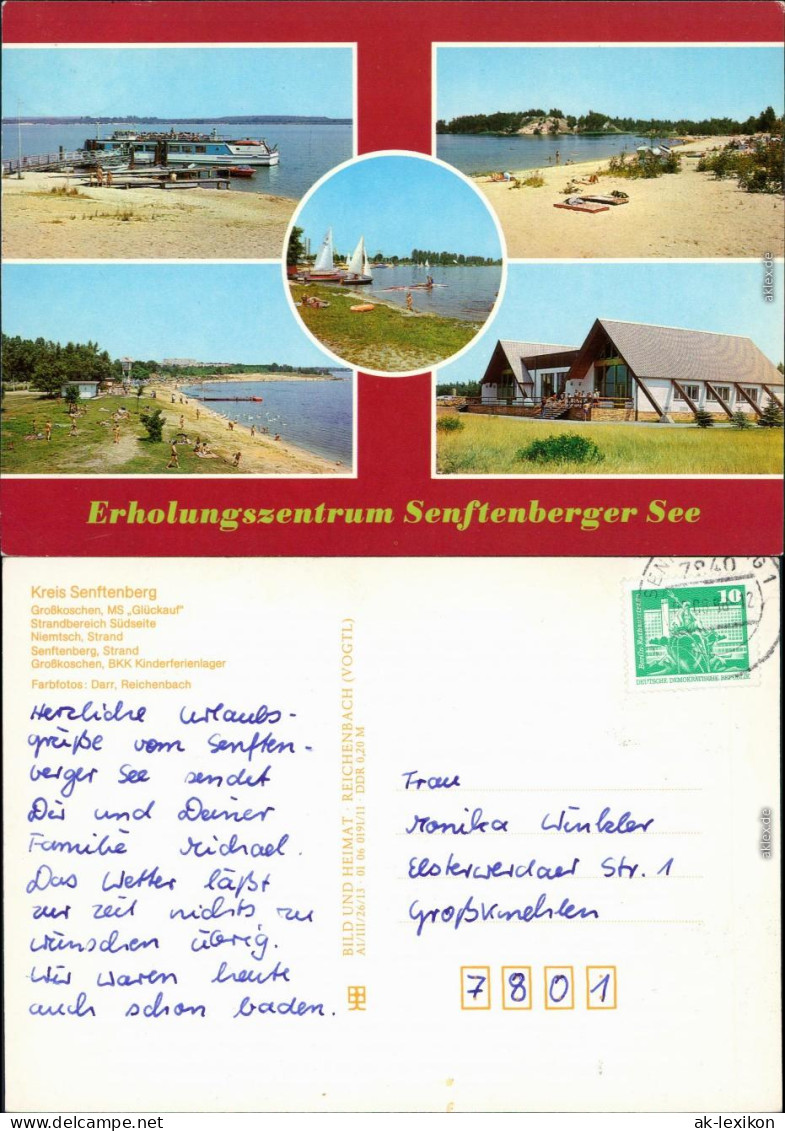 Erholungszentrum Senftenberger See
Kreis Senftenberg
Großkoschen, MS „Glückauf"
Strandbereich Südseite
Niemtsch, Strand
Senftenberg, Strand
Großkoschen, BKK Kinderferienlager
Farbfotos: Darr, Reichenbach
Herzliche Urlaubs-
grüße vom Senften-
berger See sendet
Dir und Deiner
Familie Michael.
Das Wetter läßt
zur Zeit nichts zu
wünschen übrig.
Wir waren heute
auch schon baden.
BILD UND HEIMAT · REICHENBACH (VOGTL)
A1/III/26/13 · 01 06 0191/11 · DDR 0,20 M
7840
1
10
DEUTSCHE DEMOKRATISCHE REPUBLIK
Frau
Monika Winkler
Elsterwerdaer Str. 1
Großkmehlen
7801
aklex.de
aklex.de
ak-lexikon